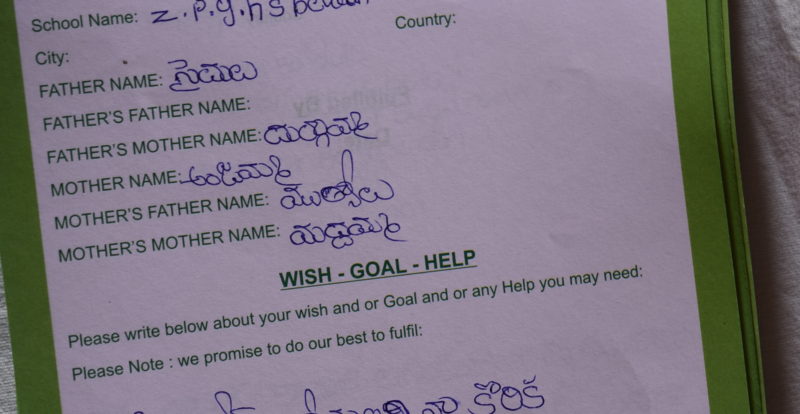 School Name: Z.P.g.hs
City: Country:
FATHER NAME: సైదులు
FATHER'S FATHER NAME:
FATHER'S MOTHER NAME: దుర్గమ్మ
MOTHER NAME: అంజమ్మ
MOTHER'S FATHER NAME: ముత్యాలు
MOTHER'S MOTHER NAME:
WISH - GOAL - HELP
Please write below about your wish and or Goal and or any Help you may need:
Please Note : we promise to do our best to fulfil:
నా కోరిక